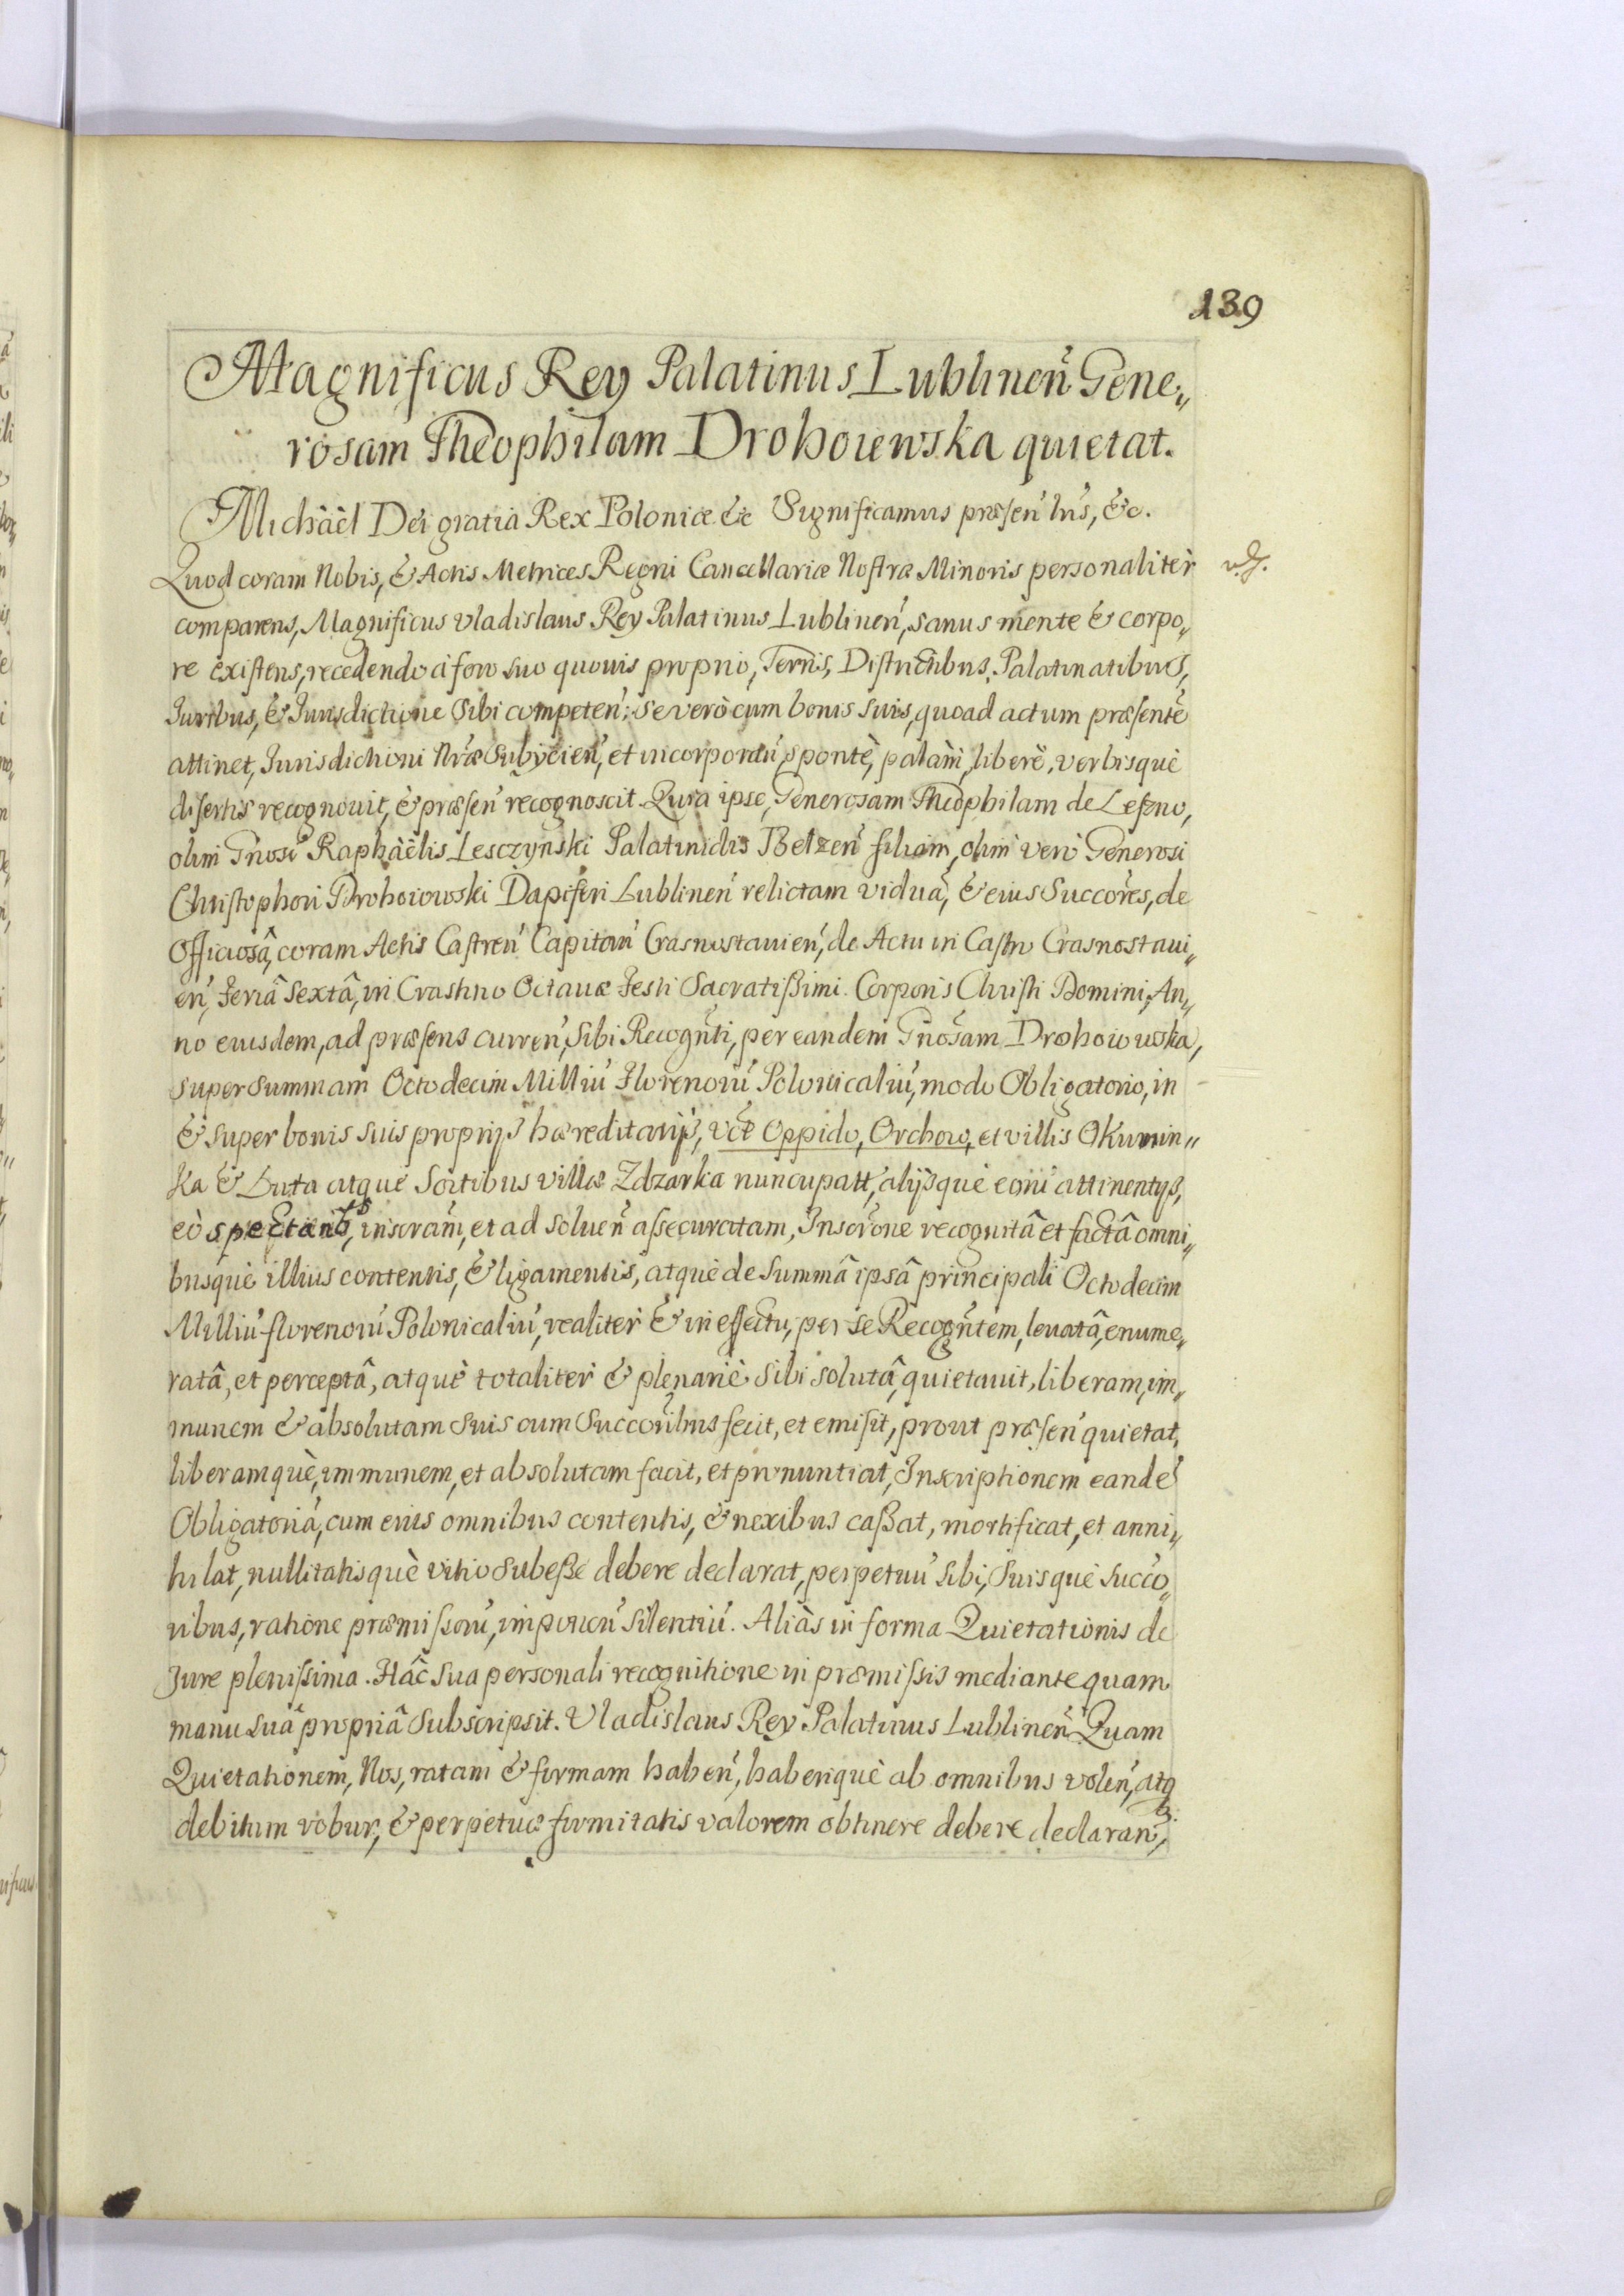 139
Magnificus Rey Palatinus Lublineñ Gene„
rosam Theophilam Drohoiewska quietat.
Michâêl Dei gratia Rex Poloniæ &c Significamus præseñ lrĩs, &c.
Quod coram Nobis, & Actis Metrices Regni Cancellariæ Nostræ Minoris personalitèr
comparens, Magnificus Vladislaus Rey Palatinus Lublineñ, sanus mente & corpo„
re existens, recedendo à foro suo quouis proprio, Terris, Districtibus, Palatinatibus,
Juribus, & Jurisdictione Sibi competeñ: Se verò cum bonis suis, quoad actum præsentẽ
attinet, Jurisdictioni Nræ Subijcieñ, et incorporañ, spontè, palàm, liberè, verbisquè
disertis recognouit, & præseñ recognoscit. Quia ipse, Generosam Theophilam de Leszno,
olim Gnosi Raphâêlis Lesczyński Palatinidis Belzeñ filiam, olim verò Generosi
Christophori Drohoiowski Dapiferi Lublineñ relictam viduã, & eius Succores, de
Officiosâ, coram Actis Castreñ Capitañ Crasnostauieñ, de Actu in Castro Crasnostaui„
eñ, Feriâ Sextâ, in Crastino Octauæ Festi Sacratißimi Corporis Christi Domini, An„
no eiusdem, ad præsens curreñ, Sibi Recognti, per eandem Gnosam Drohoiowska,
super Summam Octodecim Milliũ Florenorũ Polonicaliũ, modo Obligatorio, in
& super bonis suis proprijs hæreditarijs, vct Oppido, Orchow, et villis Okunin„
ka & Luta atque Sortibus villæ Zdzarka nuncupatt, alijsquè eorũ attinentijs,
eò spectantbs, inscram, et ad solueñ assecuratam, Inscrone recognitâ et factâ omni„
busquè illius contentis, & ligamentis, atquè de Summâ ipsâ principali Octodecim
Milliũ florenorũ Polonicaliũ, realiter & in effectu, per se Recogntem, leuatâ, enume„
ratâ, et perceptâ, atquè totaliter & plenariè Sibi solutâ, quietauit, liberam, im„
munem & absolutam Suis cum Succoribus fecit, et emisit, prout præseñ quietat,
liberamquè, immunem, et absolutam facit, et pronuntiat, Inscriptionem eandẽ
Obligatoriã, cum eius omnibus contentis, & nexibus caßat, mortificat, et anni„
hilat, nullitatisquè vitio Subeße debere declarat, perpetuũ Sibi, Suisquè Succo„
ribus, ratione præmissorũ, imponeñ Silentiũ. Aliàs in forma Quietationis de
Jure plenissima. Hâc Sua personali recognitione in præmissis mediante quam
manu Suâ propriâ Subscripsit. Vladislaus Rey Palatinus Lublineñ Quam
Quietationem, Nos, ratam & firmam habeñ, haberiquè ab omnibus voleñ, atq3
debitum robur, & perpetuæ firmitatis valorem obtinere debere declarañ,